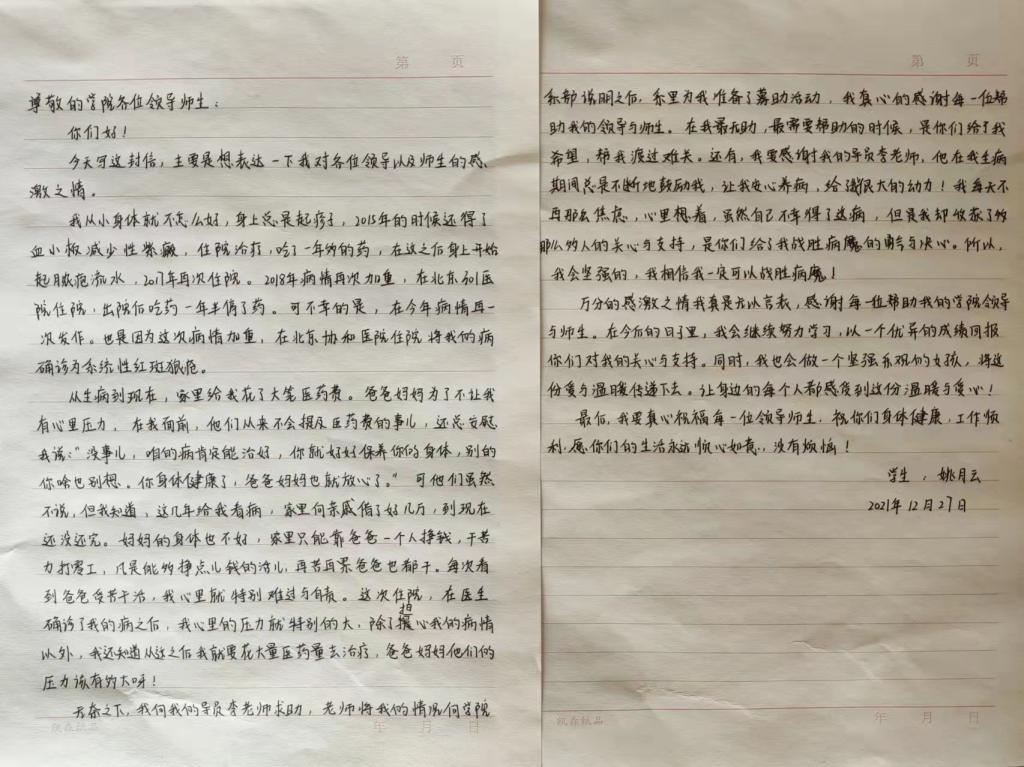 第 页
尊敬的学院各位领导师生：
你们好！
今天写这封信，主要是想表达一下我对各位领导以及师生的感
激之情。
我从小身体就不怎么好，身上总是起疹子，2015年的时候还得了
血小板减少性紫癜，住院治疗，吃了一年多的药，在这之后身上开始
起脓疱流水，2017年再次住院。2018年病情再次加重，在北京301医
院住院，出院后吃药一年半停了药。可不幸的是，在今年病情再一
次发作。也是因为这次病情加重，在北京协和医院住院将我的病
确诊为系统性红斑狼疮。
从生病到现在，家里给我花了大笔医药费。爸爸妈妈为了不让我
有心里压力，在我面前，他们从来不会提及医药费的事儿，还总安慰
我说：“没事儿，咱的病肯定能治好，你就好好保养你的身体，别的
你啥也别想。你身体健康了，爸爸妈妈也就放心了。”可他们虽然
不说，但我知道，这几年给我看病，家里向亲戚借了好几万，到现在
还没还完。妈妈的身体也不好，家里只能靠爸爸一个人挣钱，干苦
力打零工，凡是能多挣点儿钱的活儿，再苦再累爸爸也都干。每次看
到爸爸受苦干活，我心里就特别难过与自责。这次住院，在医生
确诊了我的病之后，我心里的压力就特别的大，除了担心我的病情
以外，我还知道从这之后我就要花大量医药量去治疗，爸爸妈妈他们的
压力该有多大呀！
无奈之下，我向我的导员李老师求助，老师将我的情况向学院
凯森纸品 年 月 日
第 页
系部说明之后，系里为我准备了募助活动，我真心的感谢每一位帮
助我的领导与师生。在我最无助，最需要帮助的时候，是你们给了我
希望，帮我渡过难关。还有，我要感谢我的导员李老师，他在我生病
期间总是不断地鼓励我，让我安心养病，给我很大的动力！我每天不
再那么焦虑，心里想着，虽然自己不幸得了这病，但是我却收获了多
那么多人的关心与支持，是你们给了我战胜病魔的勇气与决心。所以，
我会坚强的，我相信我一定可以战胜病魔！
万分的感激之情我真是无以言表，感谢每一位帮助我的学院领导
与师生。在今后的日子里，我会继续努力学习，以一个优异的成绩回报
你们对我的关心与支持。同时，我也会做一个坚强乐观的女孩，将这
份爱与温暖传递下去。让身边的每个人都感受到这份温暖与爱心！
最后，我要真心祝福每一位领导师生，祝你们身体健康，工作顺
利，愿你们的生活永远顺心如意，没有烦恼！
学生：姚月云
2021年12月27日
凯森纸品 年 月 日